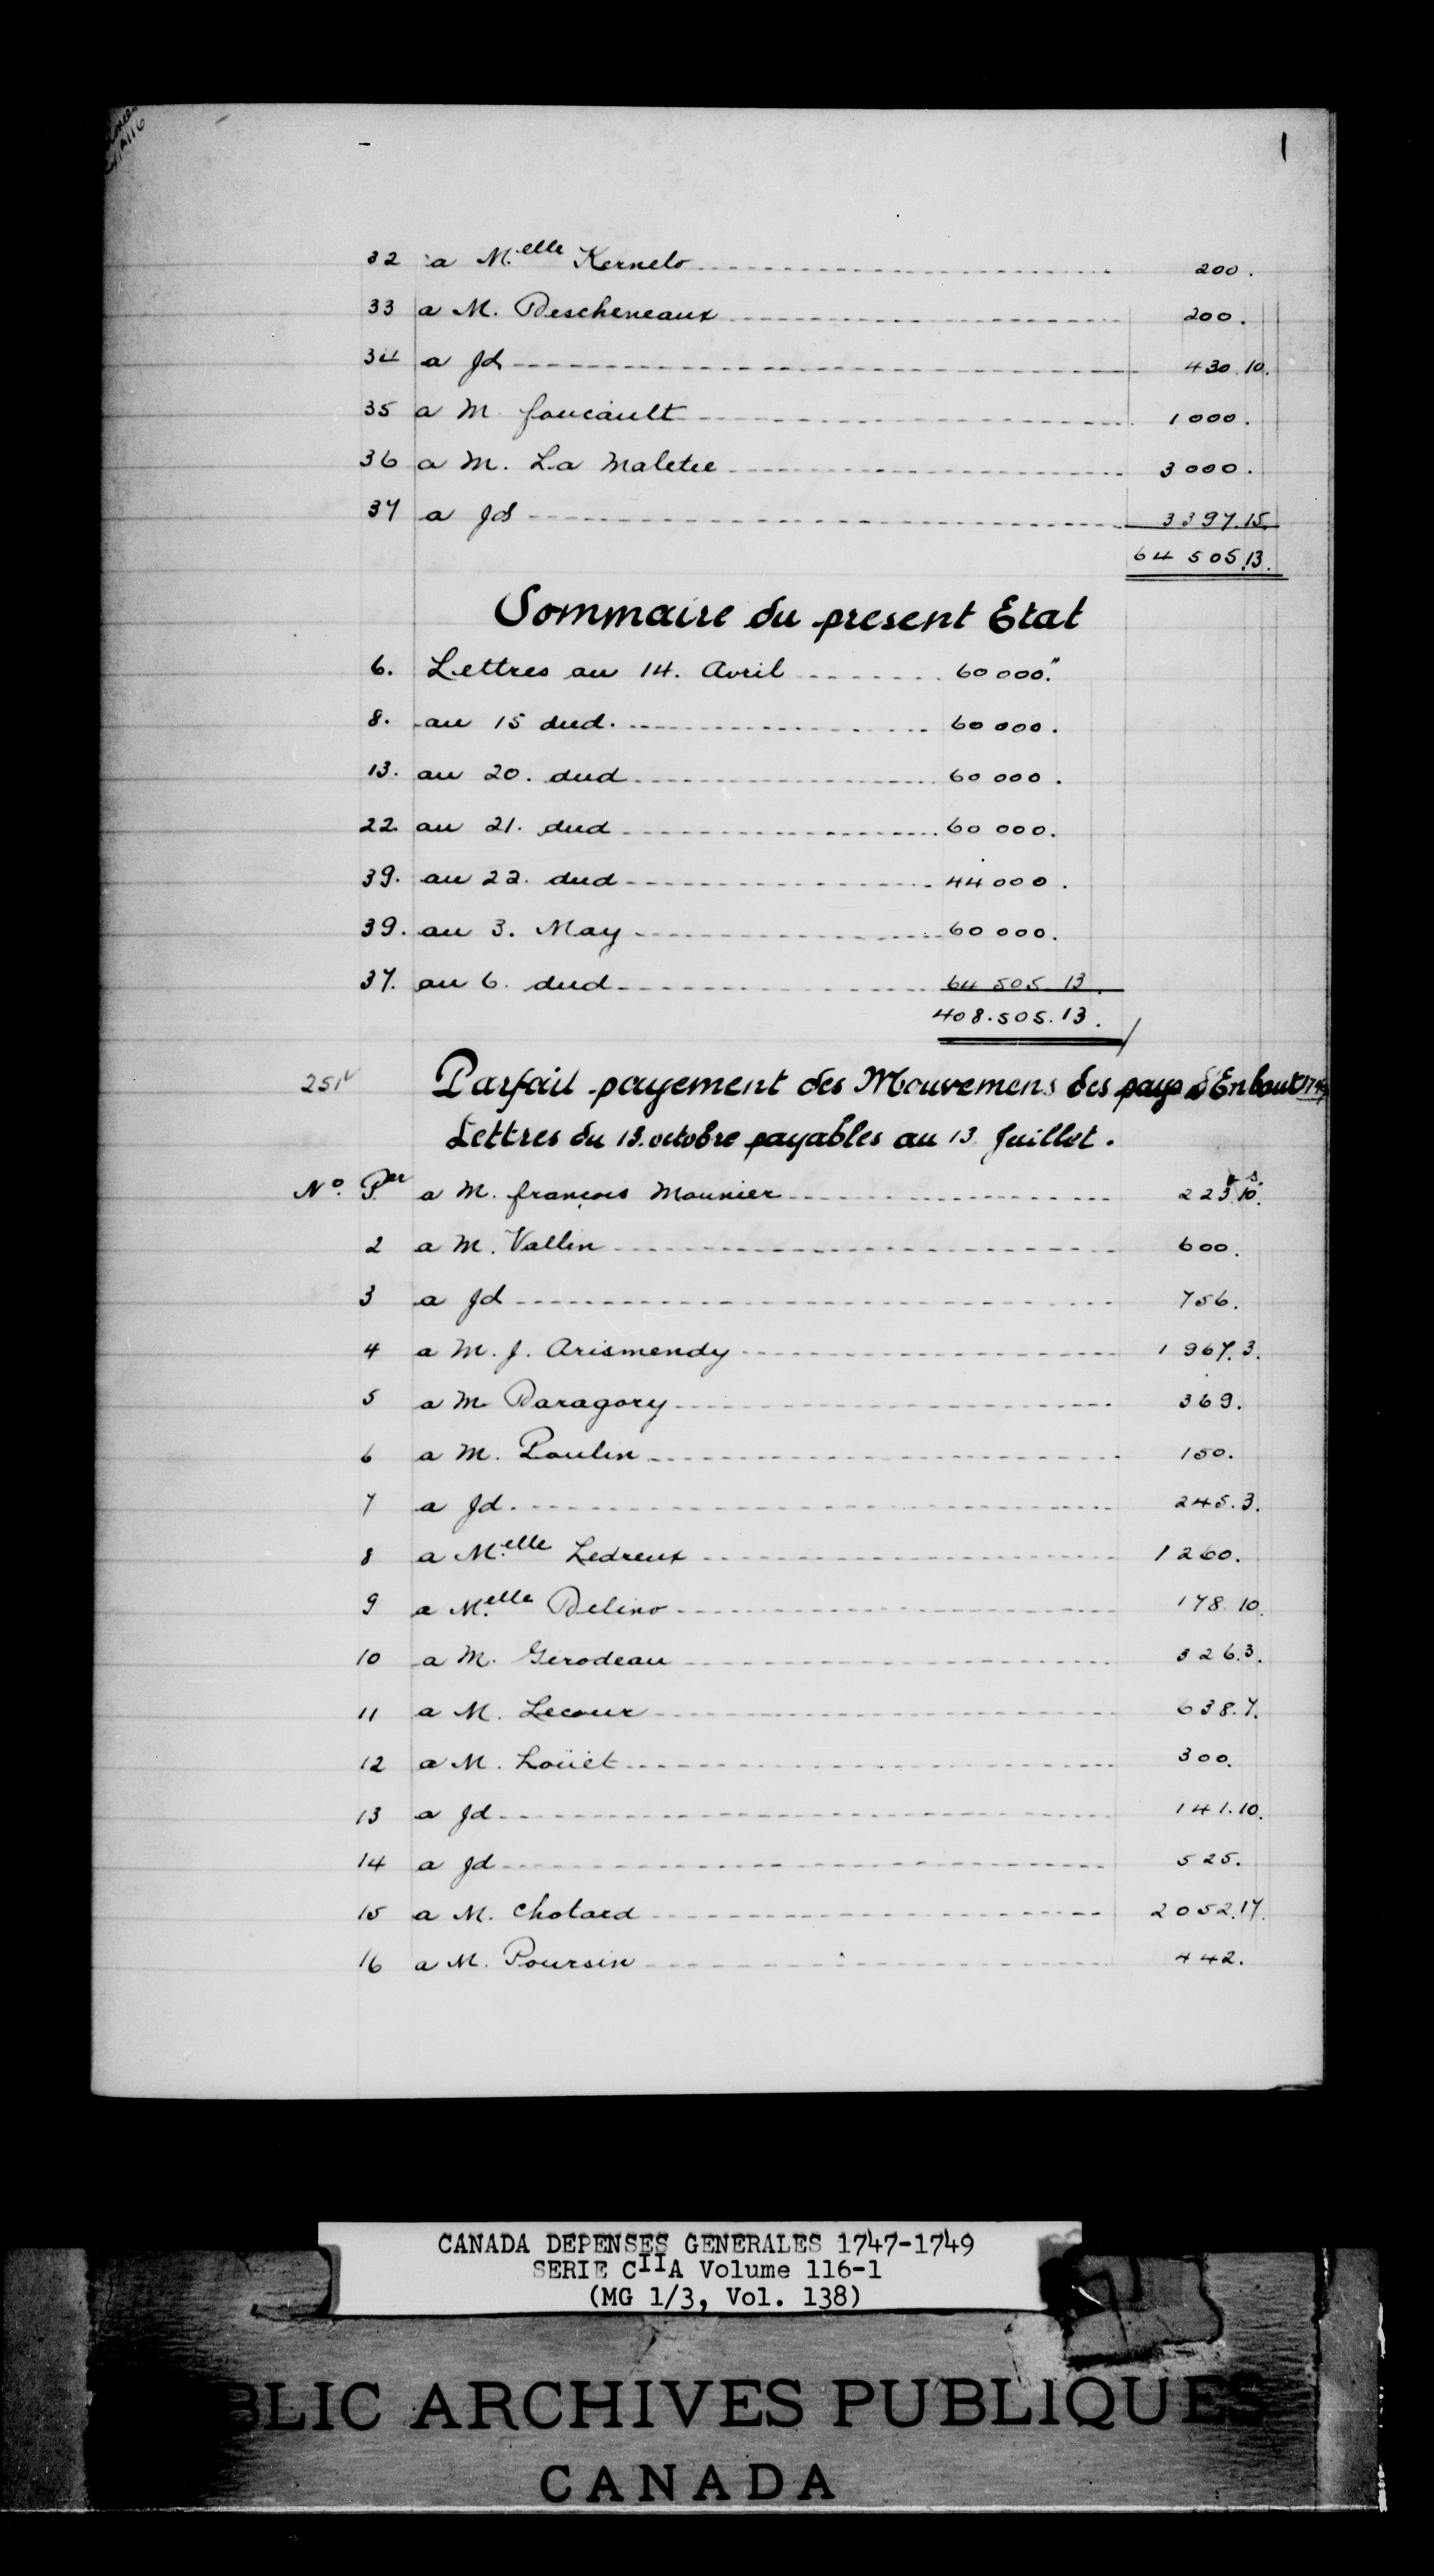 1
32 a M.elle Kernelo 200.
33 a M. Descheneaux 200.
34 a Jd 430.10.
35 a M foucault 1000.
36 a M. La Maletie 3000.
37 a Jd 3397.15.
64 505.13.
Sommaire du present Etat
6. Lettres au 14. Avril 60 000."
8. au 15 dud. 60 000.
13. au 20. dud 60 000.
22. au 21. dud 60 000.
39. au 22. dud 44 000.
39. au 3. May 60 000.
37. au 6. dud 64 505 13.
408.505.13.
251v Parfait payement des Mouvemens des pays d'Enhaut 1749
Lettres du 13. octobre payables au 13 Juillet.
No. Per a M. françois Mounier 223.10.
2 a M. Vallin 600.
3 a Jd 756.
4 a M. J. Arismendy 1 967.3.
5 a M Daragory 369.
6 a M. Poulin 150.
7 a Jd. 245.3.
8 a M.elle Ledreux 1260.
9 a M.elle Delino 178 10.
10 a M. Gerodeau 326.3.
11 a M. Lecour 638.7.
12 a M. Loüet 300.
13 a Jd 141.10.
14 a Jd 525.
15 a M. Chotard 2052.17.
16 a M. Poursin 442.
CANADA DEPENSES GENERALES 1747-1749
SERIE CIIA Volume 116-1
(MG 1/3, Vol. 138)
BLIC ARCHIVES PUBLIQUES
CANADA